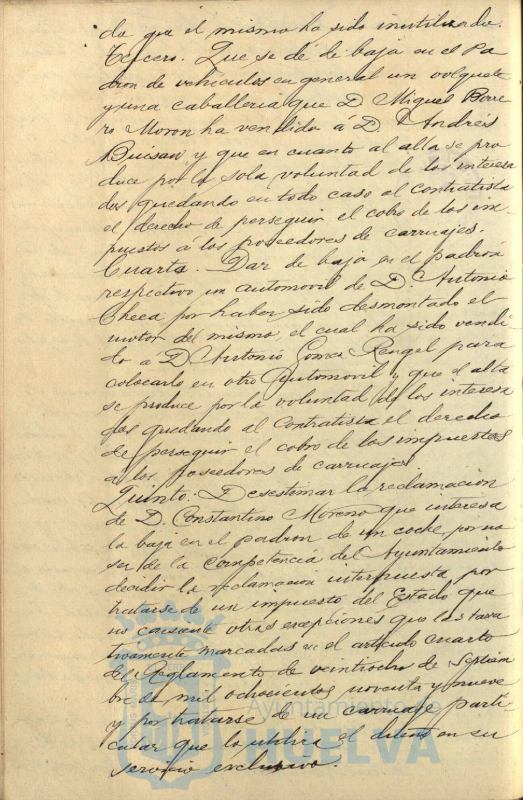 do que el mismo ha sido inutilizado.
Tercero. Que se dé de baja en el Pa
dron de vehiculos en general un volquete
y una caballeria que D. Miguel Borre
ro Moron ha vendido á D. Andrés
Buisan y que en cuanto al alta se pro
duce por la sola voluntad de los interesa
dos quedando en todo caso al contratista
el derecho de perseguir el cobro de los im
puestos á los poseedores de carruajes.
Cuarto. Dar de baja en el padrón
respectivo un automovil de D. Antonio
Checa por haber sido desmontado el
motor del mismo, el cual ha sido vendi
do a D. Antonio Gomez Rengel para
colocarlo en otro Automovil y que el alta
se produce por la voluntad de los interesa
dos quedando al Contratista el derecho
de perseguir el cobro de los impuestos
a los poseedores de carruajes.
Quinto. Desestimar la reclamacion
de D. Constantino Moreno que interesa
la baja en el padron de un coche, por no
ser de la competencia del Ayuntamiento
decidir la reclamacion interpuesta por
tratarse de un impuesto del Estado que
no consiente otras excepciones que las taxa
tivamente marcadas en el articulo cuarto
del Reglamento de veintiocho de Septiem
bre de mil ochocientos noventa y nueve
y por tratarse de un carruaje parti
cular que lo utiliza el dueño en su
servicio exclusivo.
Ayuntamiento de
HUELVA